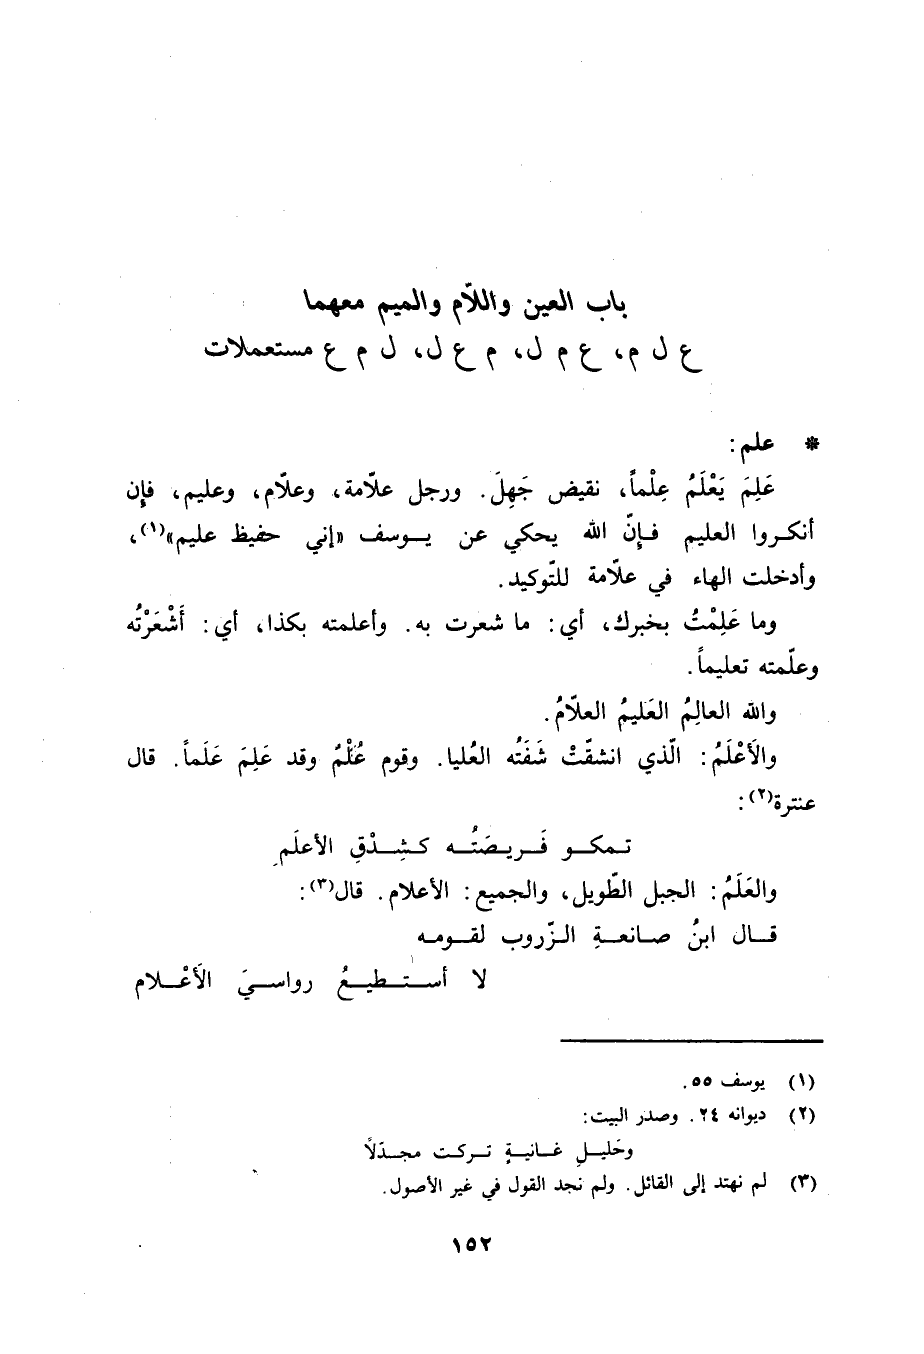 باب العين واللّام والميم معهما
ع ل م، ع م ل، م ع ل، ل م ع مستعملات
* علم:
عَلِمَ يَعْلَمُ عِلْماً، نقيض جَهِلَ. ورجل علاّمة، وعلاّم، وعليم، فإن
أنكروا العليم فإنّ الله يحكي عن يوسف «إني حفيظ عليم»(١)،
وأدخلت الهاء في علاّمة للتّوكيد.
وما عَلِمْتُ بخبرك، أي: ما شعرت به. وأعلمته بكذا، أي: أَشْعَرْتُه
وعلّمته تعليماً.
والله العالِمُ العَليمُ العلاّمُ.
والأَعْلَمُ: الّذي انشقّتْ شَفَتُه العُليا. وقوم عُلْمٌ وقد عَلِمَ عَلَماً. قال
عنترة(٢):
تمكو فَريصَتُه كشِدْقِ الأعلَمِ
والعَلَمُ: الجبل الطّويل، والجميع: الأعلام. قال(٣):
قال ابنُ صانعةِ الزّروب لقومه
لا أستطيعُ رواسيَ الأَعْلام
(١) يوسف ٥٥.
(٢) ديوانه ٢٤. وصدر البيت:
وحَليلِ غانيةٍ تركت مجدّلاً
(٣) لم نهتد إلى القائل. ولم نجد القول في غير الأصول.
١٥٢